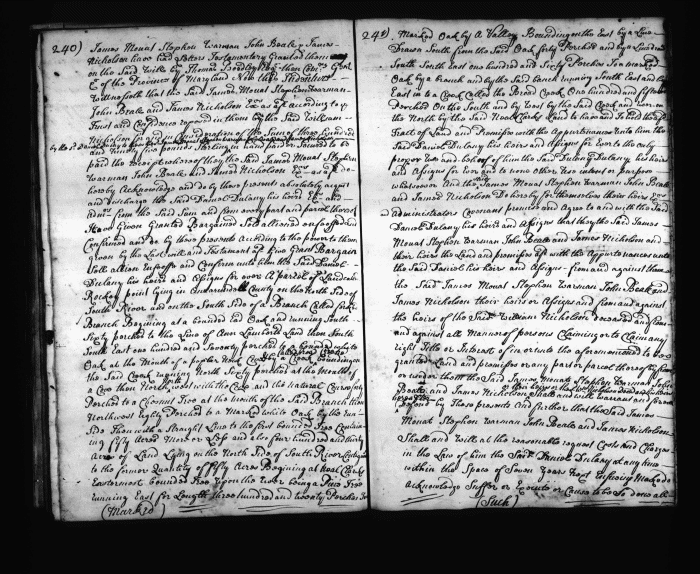 240) James Mouat Stephen Warman John Beale & James
Nicholson have had Letters Testamentary Granted them
on the Said Will by Thomas Bordley Esqr then
of the Province of Maryland Now this Indenture
Witnesseth that the Said James Mouat Stephen Warman
John Beale and James Nicholson Exrs as afd according to ye
Trust and Confidence reposed in them by the Said William
Nicholson for and in Consideration of the Sum of three hundred
and pounds Sterling in hand paid or Secured to be
paid the receipt whereof they the Said James Mouat Stephen
Warman John Beale and James Nicholson Exrs as afd do
hereby Acknowledge and do by these presents absolutely acquit
and discharge the Said Daniel Dulany his heirs Exrs and
Admrs from the Said Sum and from every part and parcel thereof
Have Given Granted Bargained Sold aliened enfeoffed &
Confirmed and do by these presents According to the power to them
given by the Last will and Testament afd Give Grant Bargain
Sell alien Enfeoff and Confirm unto him the Said Daniel
Dulany his heirs and Assigns for ever A parcel of Land
Rockey point lying in Annarundell County on the North Side of
South River and on the South Side of a Branch Called
Branch Begining at a bounded red Oak and running South
Sixty perches to the Line of Ann Lambord Land then South
South East one hundred and Seventy perches to a bounded white
Oak at the Mouth of a
the Said Creek running North Sixty perches to the Mouth of
a Cove then North west with the Cove and the Natural Course fifty
Perches to a Chesnut Tree at the mouth of the Said Branch then
Northwest eighty Perches to a Marked white Oak by the run
Side Then with a Straight Line to the first bounded Tree Contain
ing fifty Acres More or Less and also four hundred and thirty
Acres of Land Lying on the North Side of South River
to the former Quantity of fifty Acres Begining at Neal Clarks
Eastermost bounded Tree Upon the River being a Pine Tree
running East for Length Three hundred and twenty Perches To
(Marked)
241) Marked Oak by A Valley Bounding on the East by a Line
Drawn South from the Said Oak forty Perches and by a Line drawn
South South East one hundred and Sixty Perches To a marked
Oak by a branch and by the Said branch running South East and by
East in to a Creek Called the Broad Creek One hundred and fifteen
Perches On the South and by West by the Said Creek and river on
the North by the Said Neal Clarks Land to have and to hold the sd
Tract of Land and Premises with the Appurtenances unto him the
Said Daniel Dulany his heirs and Assigns for Ever to the only
proper Use and behoof of him the Said Daniel Dulany his heirs
and Assigns for ever and to none other Use intent or purpose
whatsoever And the Said James Mouat Stephen Warman John Beale
and James Nicholson Do hereby for themselves their heirs Exrs
administrators Covenant promise and Agree to and with the Said
Daniel Dulany his heirs and Assigns that they the Said James
Mouat Stephen Warman John Beale and James Nicholson and
their heirs the Land and premises afd with the Appurtenances unto
the Said Daniel his heirs and Assigns from and against them
the Said James Mouat Stephen Warman John Beale and
James Nicholson their heirs or Assigns and from and against
the heirs of the Said William Nicholson deceased and from
and against all Manner of persons Claiming or to Claim any
right Title or Interest of in or unto the aforementioned
granted Land and premises or any part or parcel thereof by from
or under them the Said James Mouat Stephen Warman John
Beale and James Nicholson shall and will warrant and
defend by These Presents And further that the Said James
Mouat Stephen Warman John Beale and James Nicholson
Shall and Will at the reasonable request Costs and Charges
in the Law of him the Said Daniel Dulany at any time
within the Space of Seven Years Next Ensuing Make do
Acknowledge Suffer or Execute or Cause to be So done all
(Such)